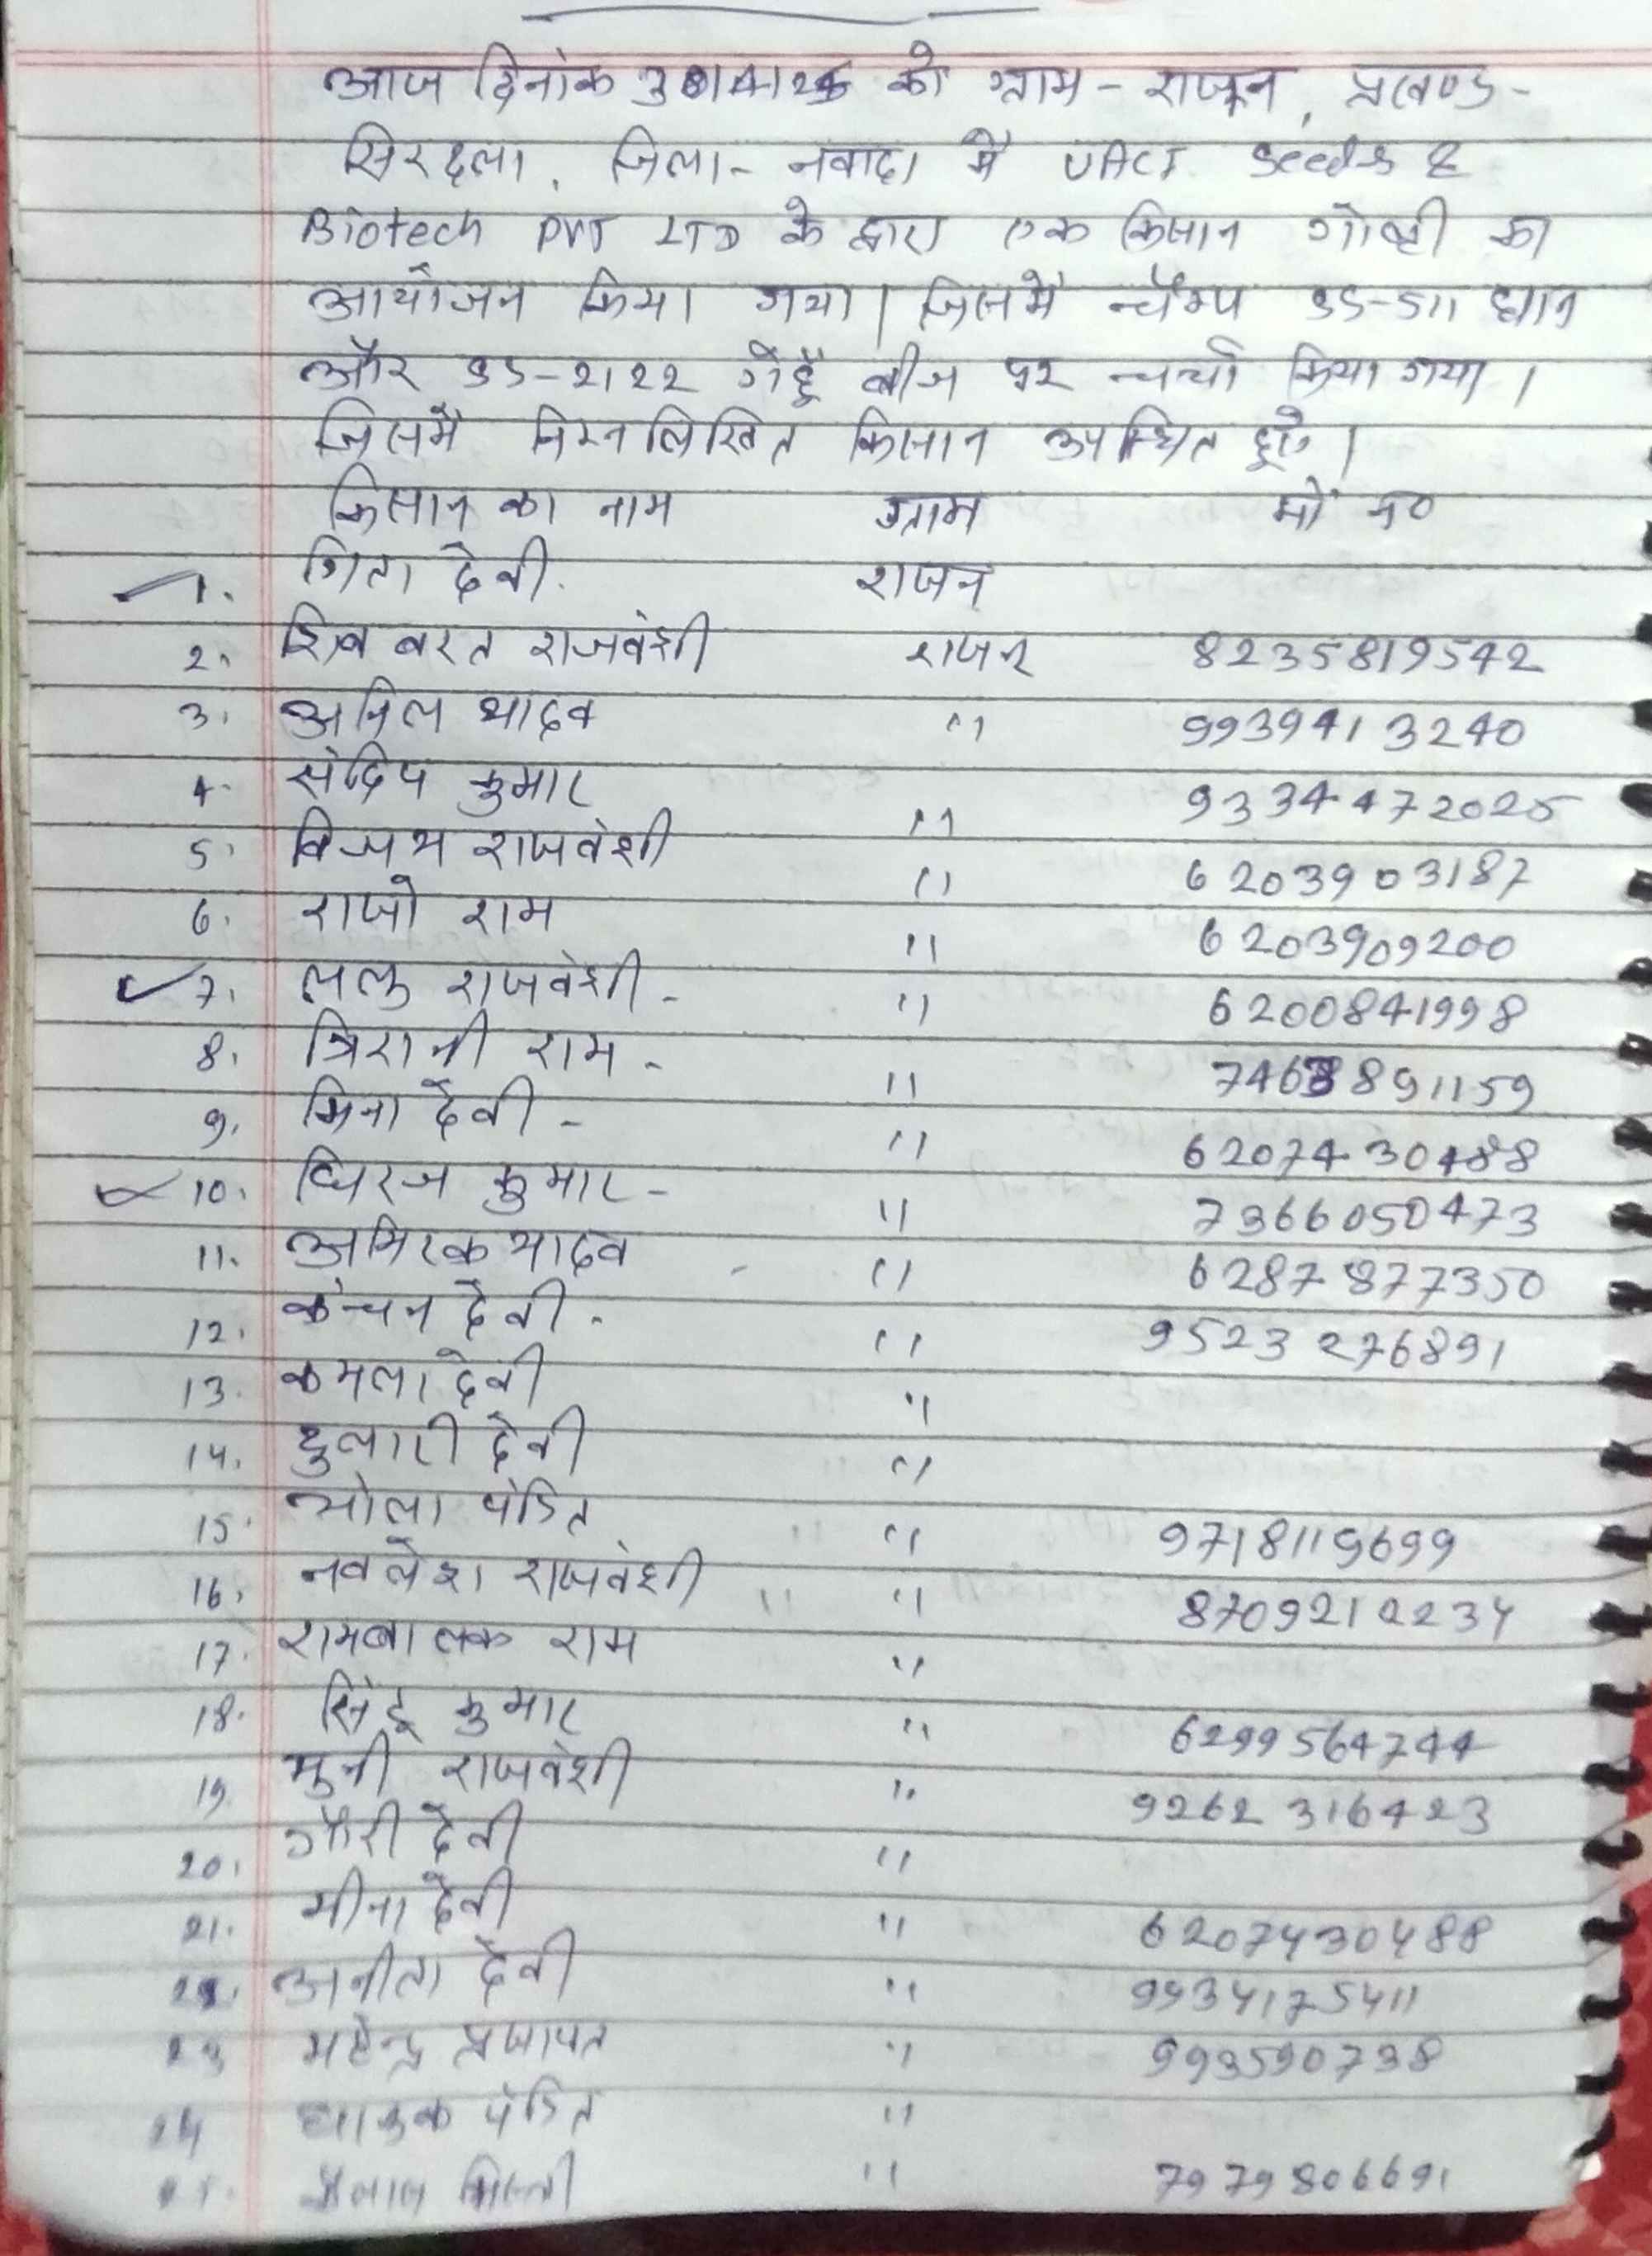 आज दिनांक को ग्राम - राजन, प्रखण्ड -
सिरदला, जिला - नवादा में Seeds &
Biotech PVT LTD के द्वारा एक किसान गोष्ठी का
आयोजन किया गया। जिसमें चैम्प SS-511 धान
और SS-2122 गेहूँ बीज पर चर्चा किया गया।
जिसमें निम्नलिखित किसान उपस्थित हुए।
किसान का नाम ग्राम मो० न०
1. गिता देवी. राजन
2. शिव बरत राजवंशी राजन 8235819542
3. अनिल यादव " 9939413240
4. संदिप कुमार " 9334472025
5. विजय राजवंशी " 6203903187
6. राजो राम " 6203909200
7. ललु राजवंशी - " 6200841998
8. राम - " 7463891159
9. मिना देवी - " 6207430488
10. धिरज कुमार - " 7366050473
11. अमिरक यादव " 6287877350
12. कंचन देवी - " 9523276891
13. कमला देवी "
14. दुलारी देवी "
15. भोला पंडित " 9718119699
16. नवलेश राजवंशी " 8709212234
17. रामबालक राम "
18. सिंटू कुमार " 6299564744
19. मुनी राजवंशी " 9262316423
20. गौरी देवी "
21. मीना देवी " 6207430488
22. अनीता देवी " 9934175411
23 महेन्द्र प्रजापत " 993590738
24 पंडित "
25. " 7979806691